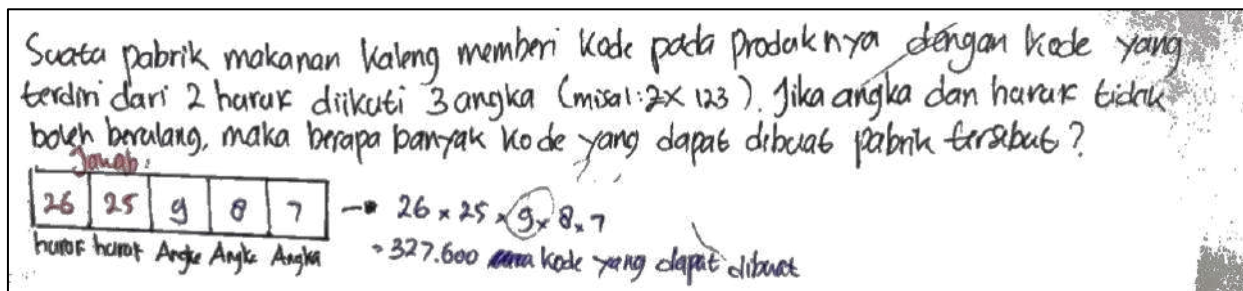 Suata pabrik makanan kaleng memberi kode pada produknya dengan kode yang
terdiri dari 2 huruf diikuti 3 angka (misal: ZX 123). Jika angka dan huruf tidak
boleh berulang, maka berapa banyak kode yang dapat dibuat pabrik tersebut?
Jawab:
26 25 9 8 7 → 26 × 25 × 9 × 8 × 7
huruf huruf Angka Angka Angka = 327.600 kode yang dapat dibuat